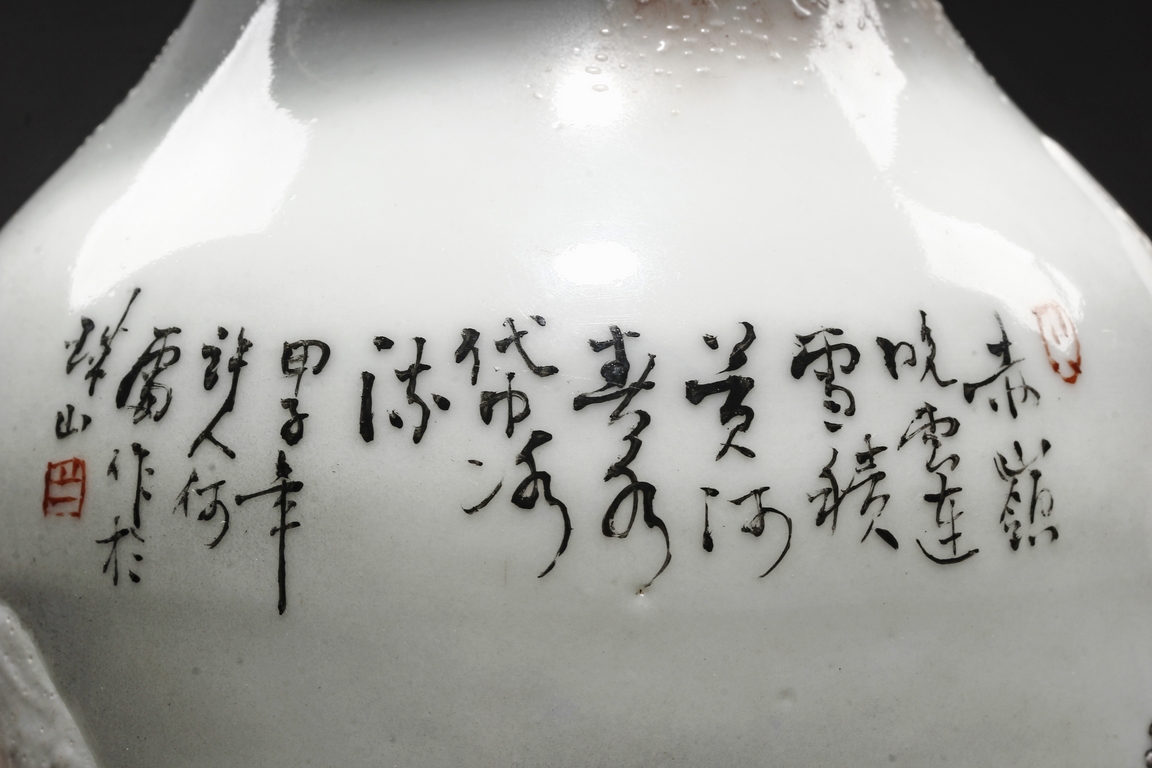 赤嶺
晚雲連
雪積
黃河
春水
帶冰
流
甲子年
許人何
雷作於
珠山